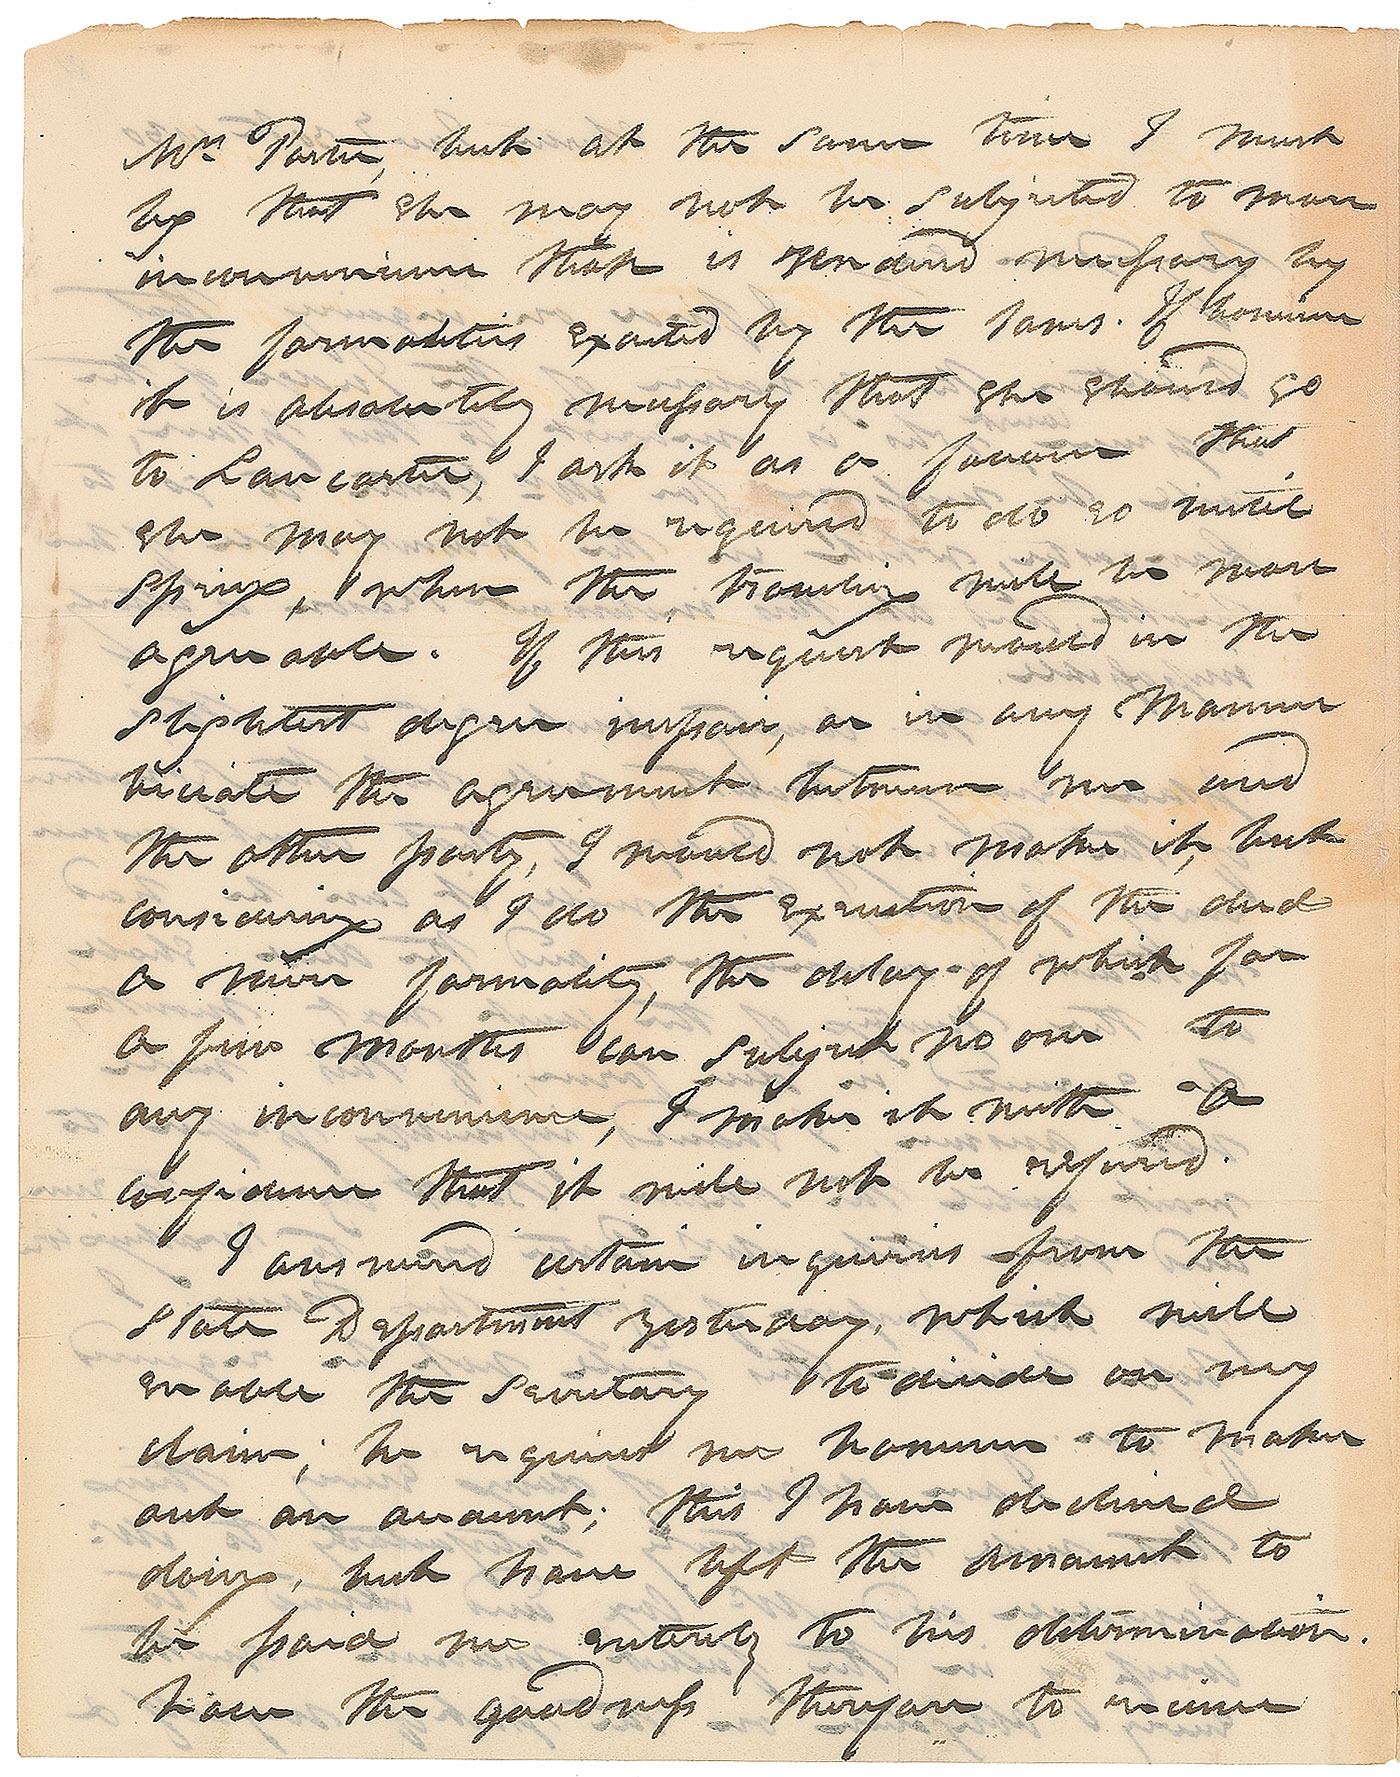 Mrs Porter, but at the same time I must
beg that she may not be subjected to more
inconvenience than is rendered necessary by
the formalities exacted by the laws. If however
it is absolutely necessary that she should go
to Lancaster, I ask it as a favour that
she may not be required to do so until
spring, when the traveling will be more
agreeable. If this request would in the
slightest degree impair, or in any manner
viciate the agreement between me and
the other party, I would not make it, but
considering as I do the execution of the deed
a mere formality, the delay of which for
a few months can subject no one to
any inconvenience, I make it with a
confidence that it will not be refused.
I answered certain inquiries from the
State Department yesterday, which will
enable the Secretary to decide on my
claim; he requires me however to make
out an account; this I have declined
doing, but have left the amount to
be paid me entirely to his determination.
have the goodness therefore to receive